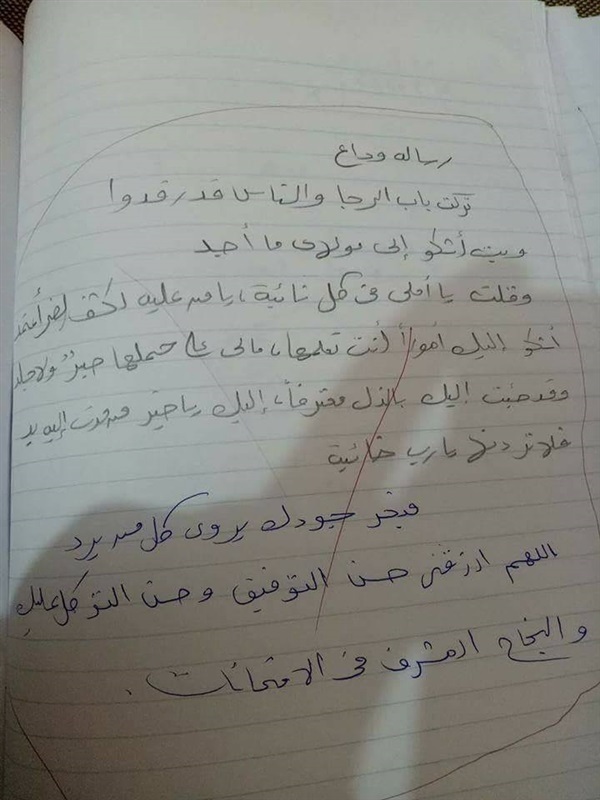 رساله وداع
تركت باب الرجا والناس قد رقدوا
وبت أشكو إلى مولاى ما أجد
وقلت يا أملى فى كل نائبة، يا من عليه لكشف الضر أعتمد
أشكو إليك أموراً أنت تعلمها، مالى على حملها صبرٌ ولا جلد
وقد جئت إليك بالذل معترفاً، إليك يا خير من مدت إليه يد
فلا تردنها يارب خائبة
فبحر جودك يروى كل من يرد
اللهم ارزقنى حسن التوفيق وحسن التوكل عليك
والنجاح المشرف فى الامتحانات.